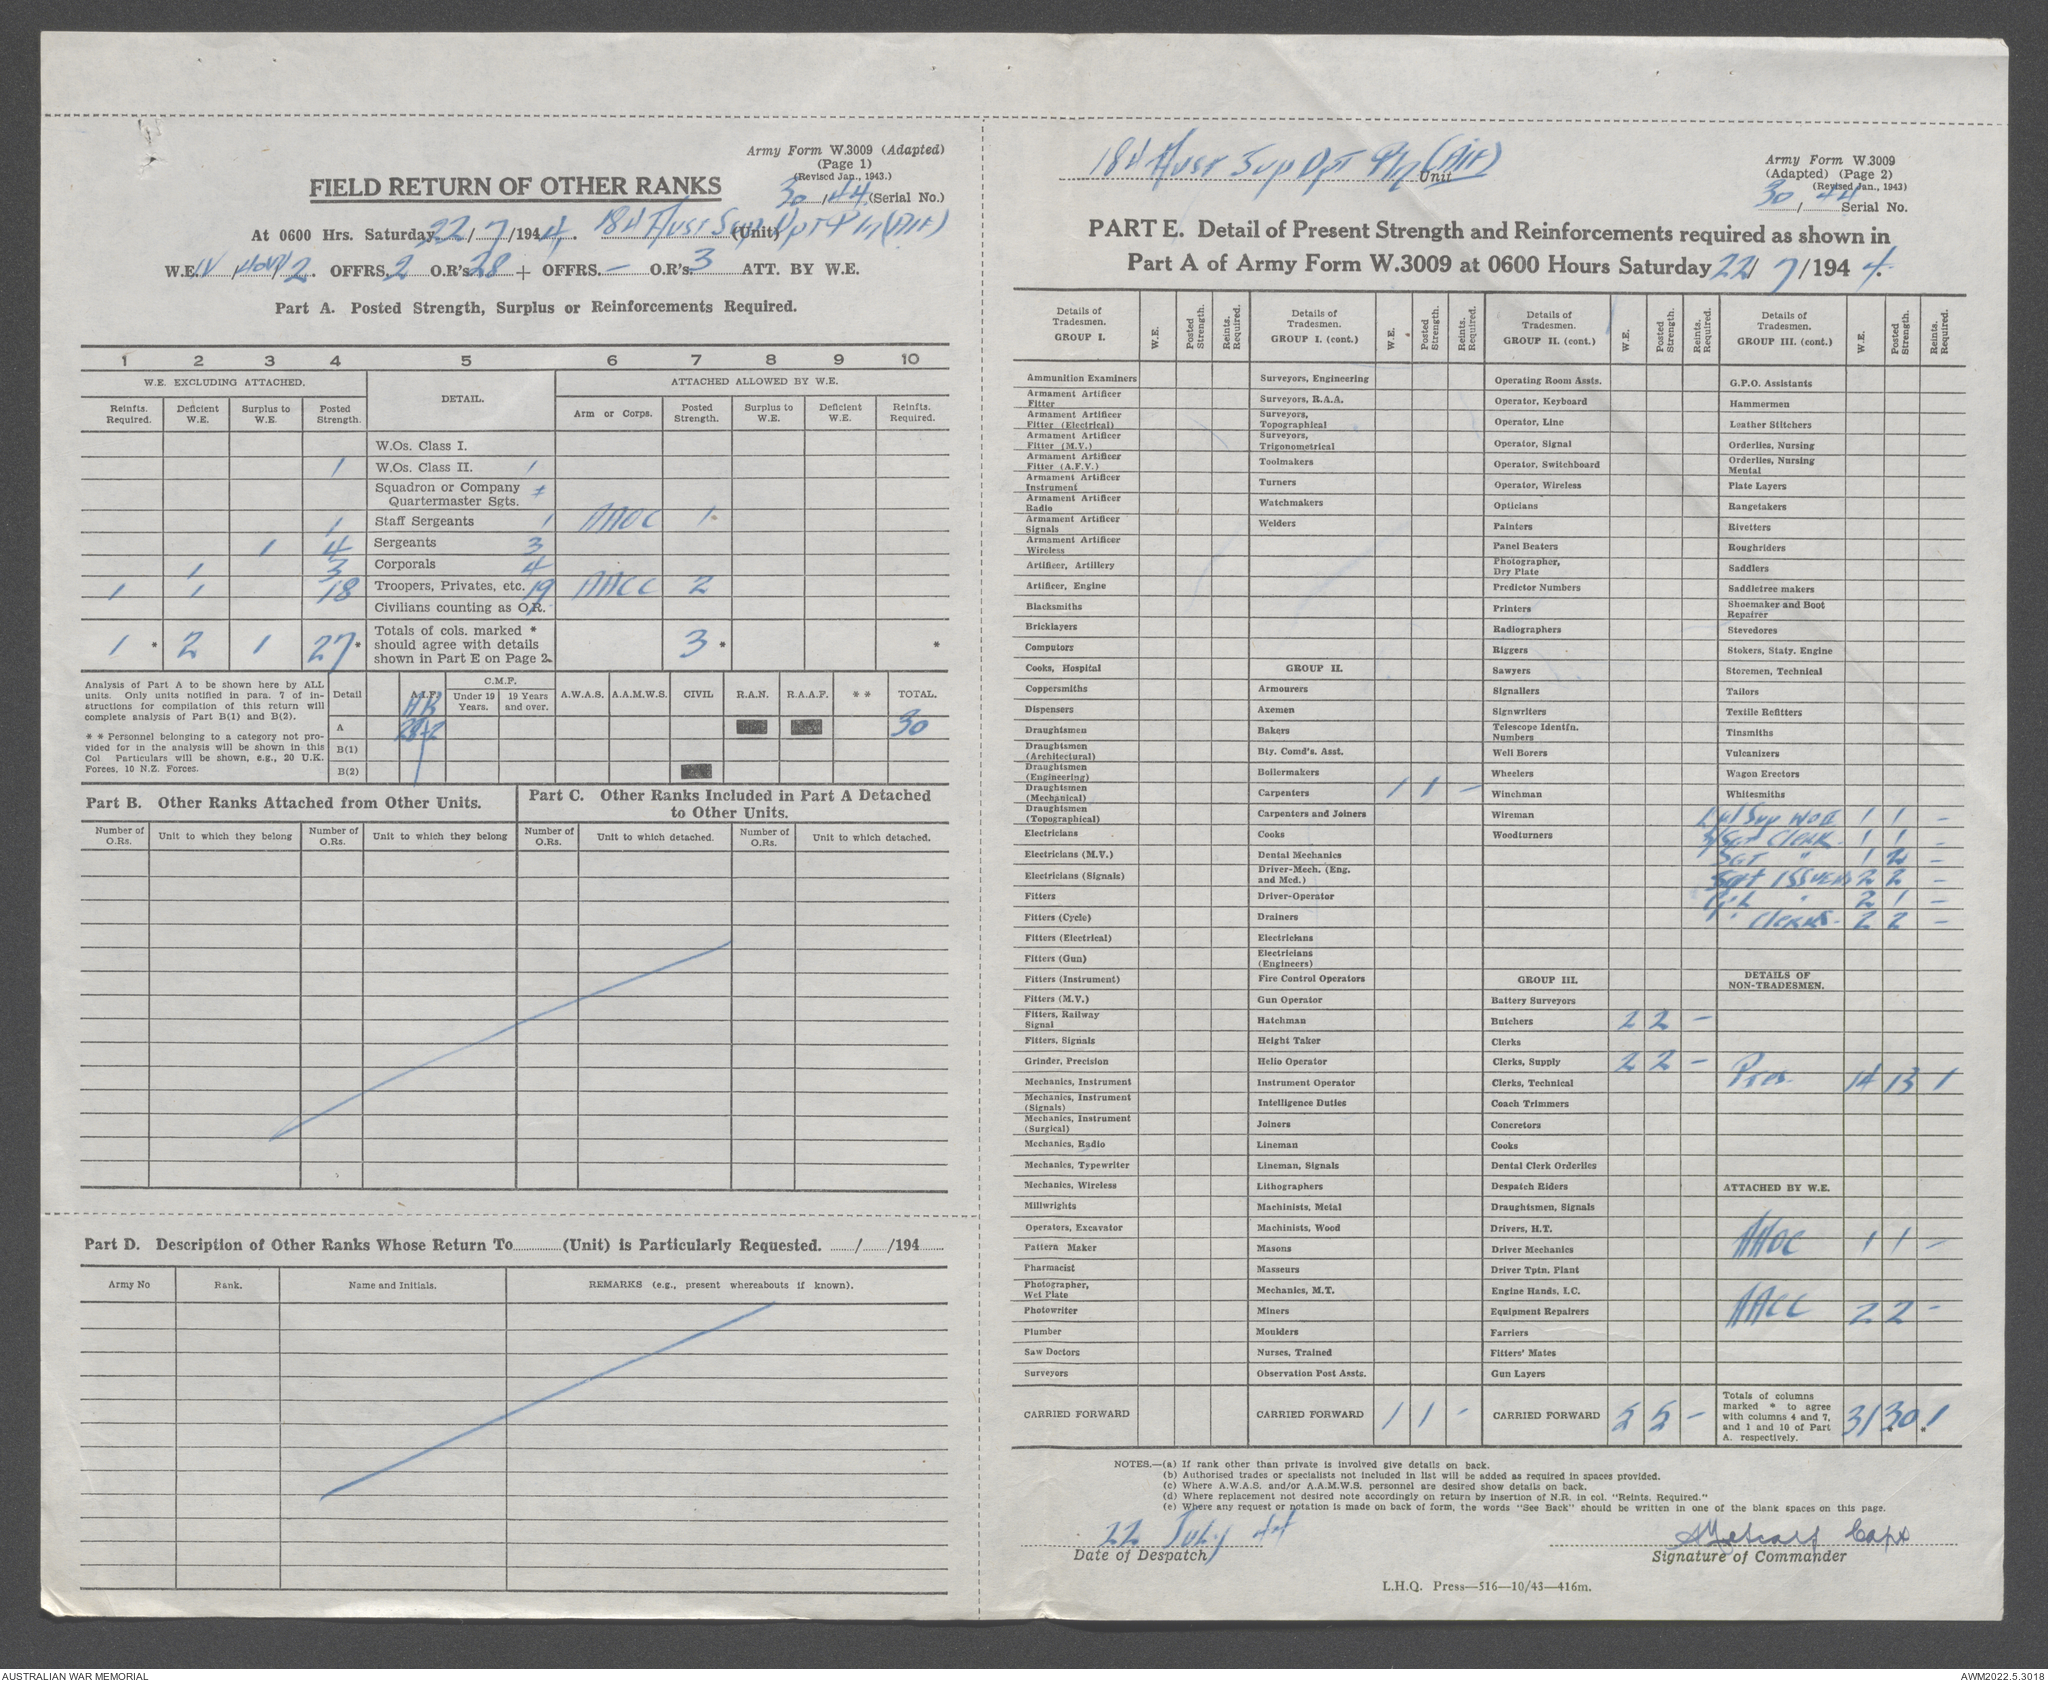 Army Form W.3009 (Adapted)
(Page 1)
(Revised Jan., 1943.)
30/44 (Serial No.)
FIELD RETURN OF OTHER RANKS
At 0600 Hrs. Saturday 22/7/1944. 184 Aust Sup Dpt Pln (AIF) (Unit)
W.E. IV / / 2. OFFRS. 2 O.R's 28 + OFFRS. — O.R's 3 ATT. BY W.E.
Part A. Posted Strength, Surplus or Reinforcements Required.
1 2 3 4 5 6 7 8 9 10
W.E. EXCLUDING ATTACHED. DETAIL. ATTACHED ALLOWED BY W.E.
Reinfts. Required. Deficient W.E. Surplus to W.E. Posted Strength. Arm or Corps. Posted Strength. Surplus to W.E. Deficient W.E. Reinfts. Required.
W.Os. Class I.
1 W.Os. Class II. 1
Squadron or Company
Quartermaster Sgts.
1 Staff Sergeants 1 AAOC 1
1 4 Sergeants 3
1 3 Corporals 4
1 1 18 Troopers, Privates, etc. 19 AACC 2
Civilians counting as O.R.
1 * 2 1 27 * Totals of cols. marked * should agree with details shown in Part E on Page 2. 3 * *
Analysis of Part A to be shown here by ALL
units. Only units notified in para. 7 of in-
structions for compilation of this return will
complete analysis of Part B(1) and B(2).
* * Personnel belonging to a category not pro-
vided for in the analysis will be shown in this
Col Particulars will be shown, e.g., 20 U.K.
Forces, 10 N.Z. Forces.
Detail A.I.F. C.M.F. Under 19 Years. 19 Years and over. A.W.A.S. A.A.M.W.S. CIVIL R.A.N. R.A.A.F. * * TOTAL.
A 28+2 30
B(1)
B(2)
Part B. Other Ranks Attached from Other Units.
Part C. Other Ranks Included in Part A Detached
to Other Units.
Number of O.Rs. Unit to which they belong Number of O.Rs. Unit to which they belong Number of O.Rs. Unit to which detached. Number of O.Rs. Unit to which detached.
Part D. Description of Other Ranks Whose Return To (Unit) is Particularly Requested. / /194
Army No Rank. Name and Initials. REMARKS (e.g., present whereabouts if known).
184 Aust Sup Dpt Pln (AIF) Unit
Army Form W.3009
(Adapted) (Page 2)
(Revised Jan., 1943)
30/44 Serial No.
PART E. Detail of Present Strength and Reinforcements required as shown in
Part A of Army Form W.3009 at 0600 Hours Saturday 22/7/1944.
Details of Tradesmen. GROUP I. W.E. Posted Strength. Reints. Required.
Ammunition Examiners
Armament Artificer Fitter
Armament Artificer Fitter (Electrical)
Armament Artificer Fitter (M.V.)
Armament Artificer Fitter (A.F.V.)
Armament Artificer Instrument
Armament Artificer Radio
Armament Artificer Signals
Armament Artificer Wireless
Artificer, Artillery
Artificer, Engine
Blacksmiths
Bricklayers
Computors
Cooks, Hospital
Coppersmiths
Dispensers
Draughtsmen
Draughtsmen (Architectural)
Draughtsmen (Engineering)
Draughtsmen (Mechanical)
Draughtsmen (Topographical)
Electricians
Electricians (M.V.)
Electricians (Signals)
Fitters
Fitters (Cycle)
Fitters (Electrical)
Fitters (Gun)
Fitters (Instrument)
Fitters (M.V.)
Fitters, Railway Signal
Fitters, Signals
Grinder, Precision
Mechanics, Instrument
Mechanics, Instrument (Signals)
Mechanics, Instrument (Surgical)
Mechanics, Radio
Mechanics, Typewriter
Mechanics, Wireless
Millwrights
Operators, Excavator
Pattern Maker
Pharmacist
Photographer, Wet Plate
Photowriter
Plumber
Saw Doctors
Surveyors
CARRIED FORWARD
Details of Tradesmen. GROUP I. (cont.) W.E. Posted Strength. Reints. Required.
Surveyors, Engineering
Surveyors, R.A.A.
Surveyors, Topographical
Surveyors, Trigonometrical
Toolmakers
Turners
Watchmakers
Welders
GROUP II.
Armourers
Axemen
Bakers
Bty. Comd's. Asst.
Boilermakers
Carpenters 1 1 —
Carpenters and Joiners
Cooks
Dental Mechanics
Driver-Mech. (Eng. and Mcd.)
Driver-Operator
Drainers
Electricians
Electricians (Engineers)
Fire Control Operators
Gun Operator
Hatchman
Height Taker
Helio Operator
Instrument Operator
Intelligence Duties
Joiners
Lineman
Lineman, Signals
Lithographers
Machinists, Metal
Machinists, Wood
Masons
Masseurs
Mechanics, M.T.
Miners
Moulders
Nurses, Trained
Observation Post Assts.
CARRIED FORWARD 1 1 —
Details of Tradesmen. GROUP II. (cont.) W.E. Posted Strength. Reints. Required.
Operating Room Assts.
Operator, Keyboard
Operator, Line
Operator, Signal
Operator, Switchboard
Operator, Wireless
Opticians
Painters
Panel Beaters
Photographer, Dry Plate
Predictor Numbers
Printers
Radiographers
Riggers
Sawyers
Signallers
Signwriters
Telescope Identfn. Numbers
Well Borers
Wheelers
Winchman
Wireman
Woodturners
GROUP III.
Battery Surveyors
Butchers 2 2 —
Clerks
Clerks, Supply 2 2 —
Clerks, Technical
Coach Trimmers
Concretors
Cooks
Dental Clerk Orderlies
Despatch Riders
Draughtsmen, Signals
Drivers, H.T.
Driver Mechanics
Driver Tptn. Plant
Engine Hands, I.C.
Equipment Repairers
Farriers
Fitters' Mates
Gun Layers
CARRIED FORWARD 5 5 —
Details of Tradesmen. GROUP III. (cont.) W.E. Posted Strength. Reints. Required.
G.P.O. Assistants
Hammermen
Leather Stitchers
Orderlies, Nursing
Orderlies, Nursing Mental
Plate Layers
Rangetakers
Rivetters
Roughriders
Saddlers
Saddletree makers
Shoemaker and Boot Repairer
Stevedores
Stokers, Staty. Engine
Storemen, Technical
Tailors
Textile Refitters
Tinsmiths
Vulcanizers
Wagon Erectors
Whitesmiths
Sup WO II 1 1 —
S/Sgt Clerk 1 1 —
Sgt " 1 2 —
Sgt Issuers 2 2 —
Cpl " 2 1 —
" Clerks 2 2 —
DETAILS OF
NON-TRADESMEN.
Ptes. 14 13 1
ATTACHED BY W.E.
AAOC 1 1 —
AACC 2 2 —
Totals of columns marked * to agree with columns 4 and 7, and 1 and 10 of Part A. respectively. 31 30 * 1 *
NOTES.—(a) If rank other than private is involved give details on back.
(b) Authorised trades or specialists not included in list will be added as required in spaces provided.
(c) Where A.W.A.S. and/or A.A.M.W.S. personnel are desired show details on back.
(d) Where replacement not desired note accordingly on return by insertion of N.R. in col. "Reints. Required."
(e) Where any request or notation is made on back of form, the words "See Back" should be written in one of the blank spaces on this page.
22 July 44
Date of Despatch
Metcalf Capt
Signature of Commander
L.H.Q. Press—516—10/43—416m.
AUSTRALIAN WAR MEMORIAL
AWM2022.5.3018